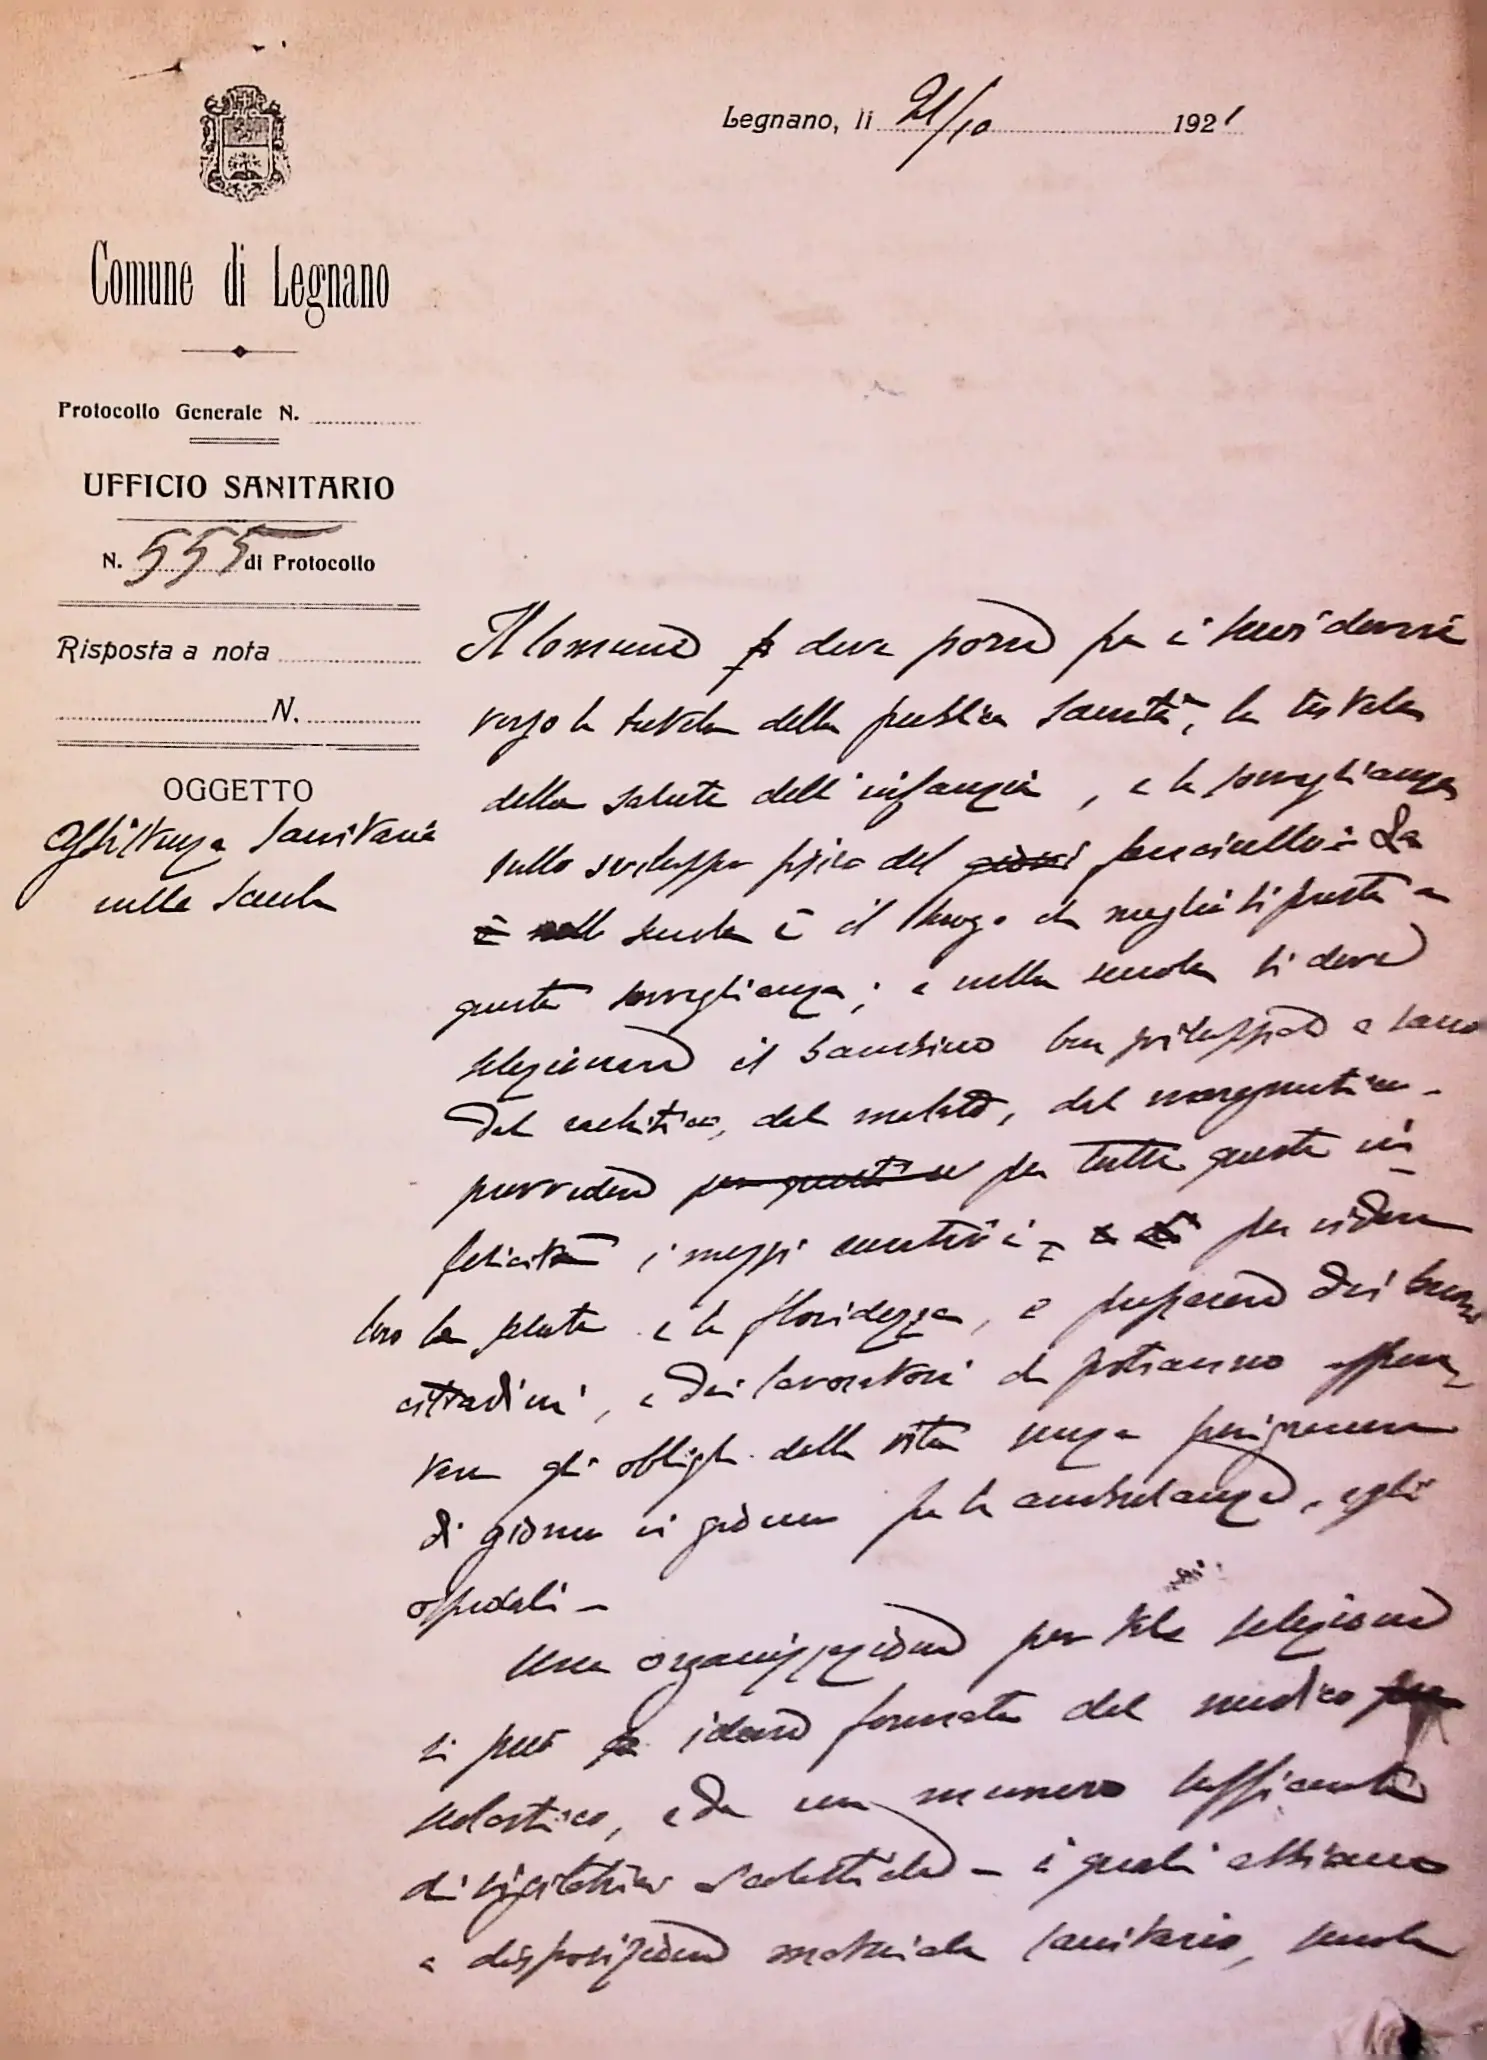 Legnano, li 21/10 1921
Comune di Legnano
Protocollo Generale N.
UFFICIO SANITARIO
N. 555 di Protocollo
Risposta a nota
N.
OGGETTO
Assistenza Sanitaria
nelle Scuole
Il Comune deve porre fra i suoi doveri
verso la tutela della pubblica sanità, la tutela
della salute dell'infanzia, e la sorveglianza
sullo sviluppo fisico del fanciullo: La
scuola è il luogo che meglio si presta a
questa sorveglianza; e nella scuola si deve
selezionare il bambino ben sviluppato e sano
dal rachitico, dal malato, dal
provvedere per tutte queste in
felicità i mezzi curativi per ridare
loro la salute e la floridezza, e preparare dei buoni
cittadini, e dei lavoratori che potranno
gli obblighi della vita senza
di giorno in giorno per le ambulanze, e gli
ospedali -
Una organizzazione per tale selezione
si può ideare formata dal medico
scolastico, e da un numero sufficiente
di vigilatrici scolastiche - i quali abbiano
a disposizione materiale sanitario, scuole